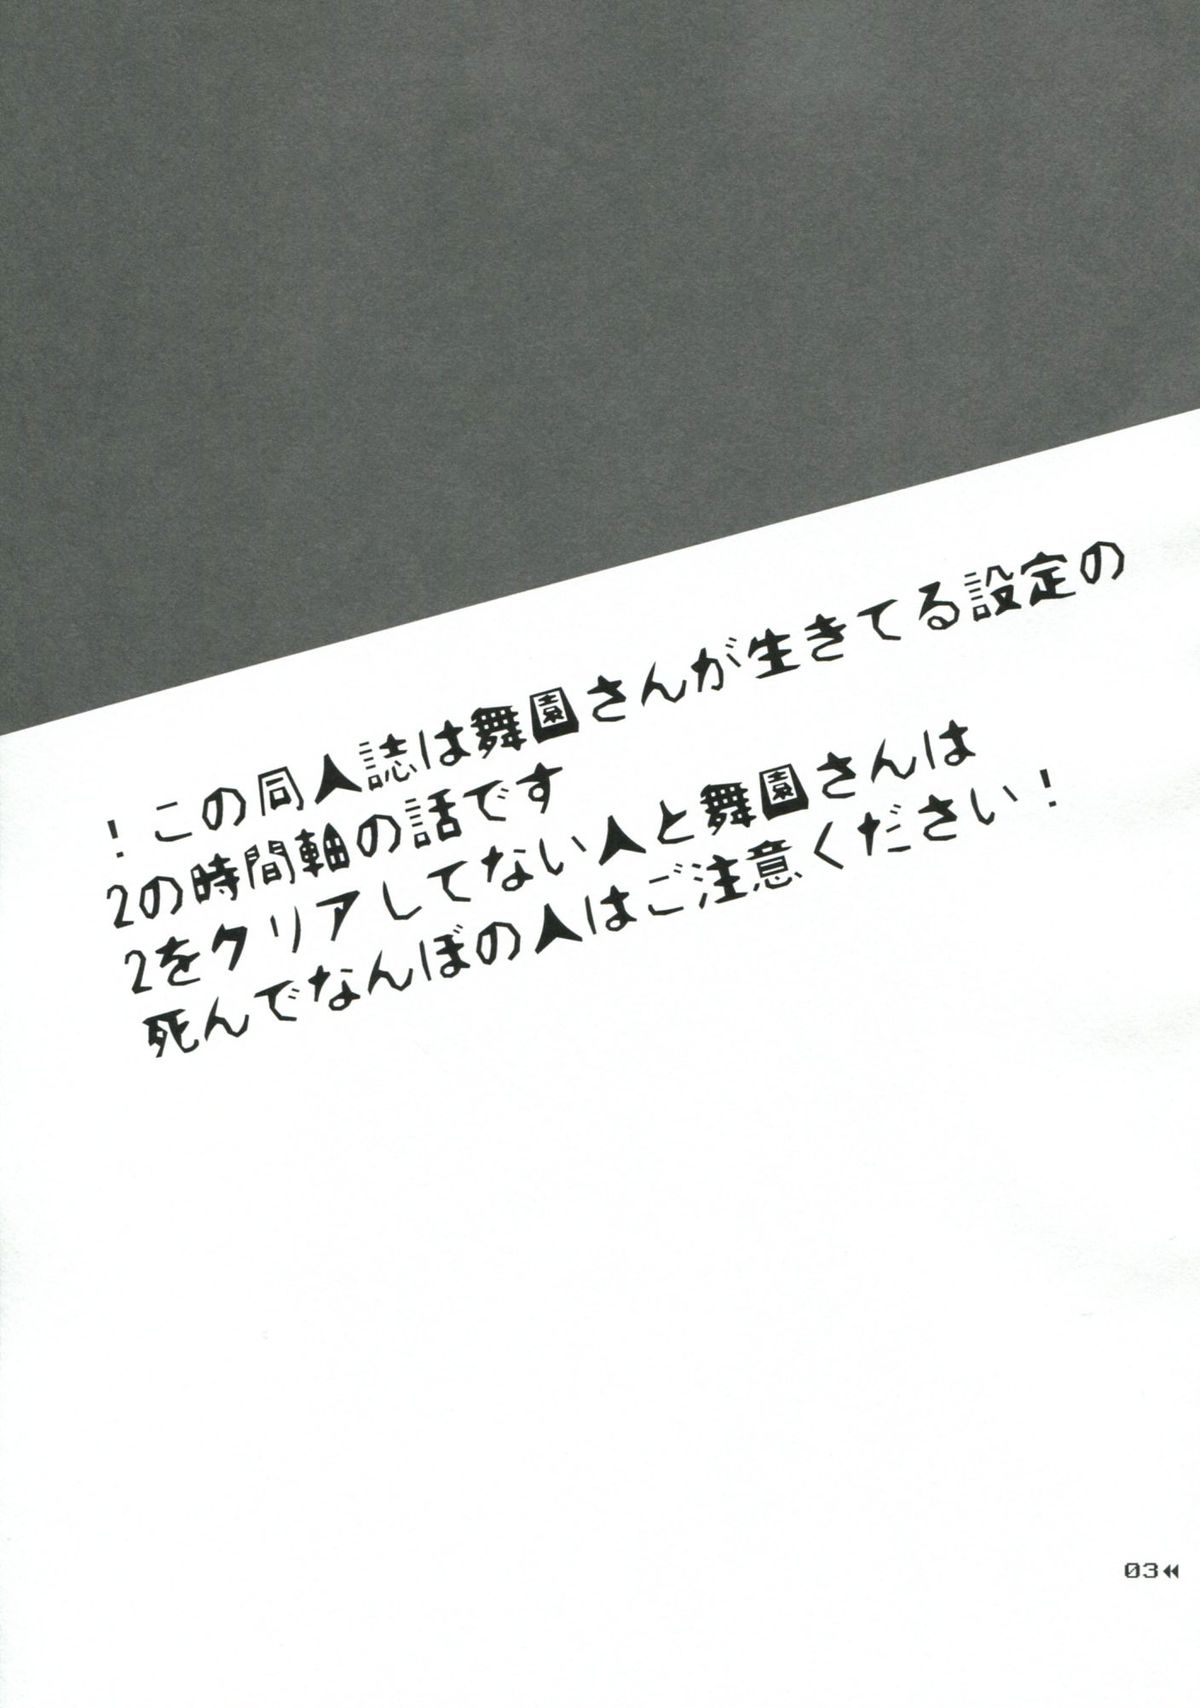 ！この同人誌は舞園さんが生きてる設定の
2の時間軸の話です
2をクリアしてない人と舞園さんは
死んでなんぼの人はご注意ください！
03